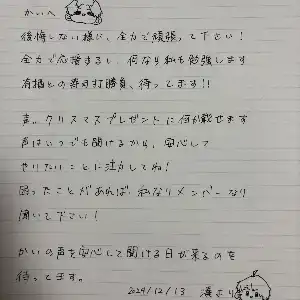 かいへ
後悔しない様に、全力で頑張って下さい!
全力で応援するし、何なり私も勉強します
有栖との寿司打勝負、待ってます!!
声、クリスマスプレゼントに何か載せます
声はいつでも聞けるから、安心して
やりたいことに注力してね!
困ったことがあれば、私なりメンバーなり
頼って下さい!
かいの声を安心して聞ける日が来るのを
待ってます。
2024/12/13
より